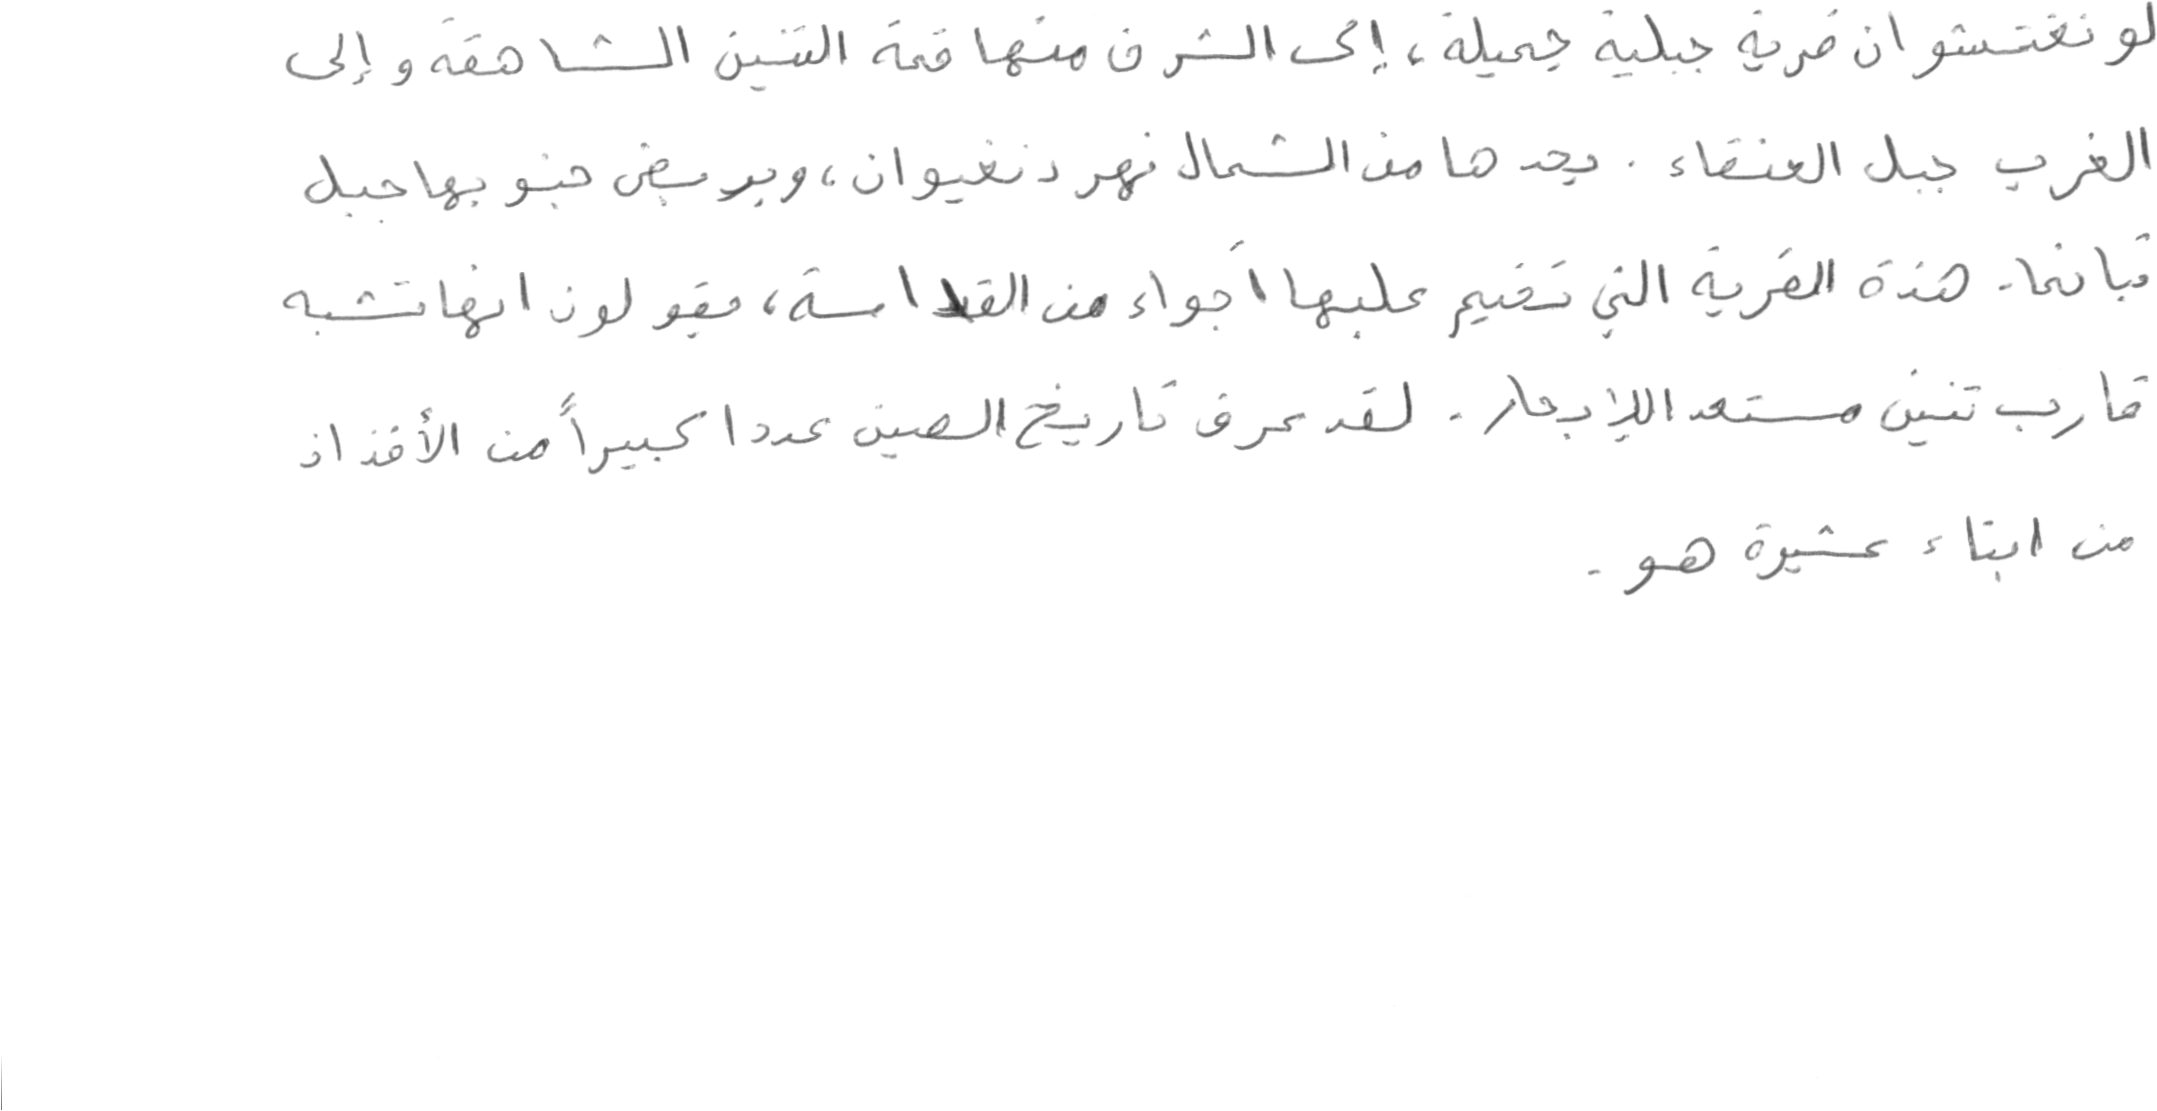 لونغتشوان قرية جبلية جميلة، إلى الشرق منها قمة التنين الشاهقة وإلى
الغرب جبل العنقاء. يحدها من الشمال نهر دنغيوان، ويربض جنوبها جبل
تيانما. هذة القرية التي تخيم عليها أجواء من القداسة، يقولون انها تشبه
قارب تنين مستعد اللإبحار. لقد عرف تاريخ الصين عددا كبيراً من الأفذاذ
من ابناء عشيرة هو.